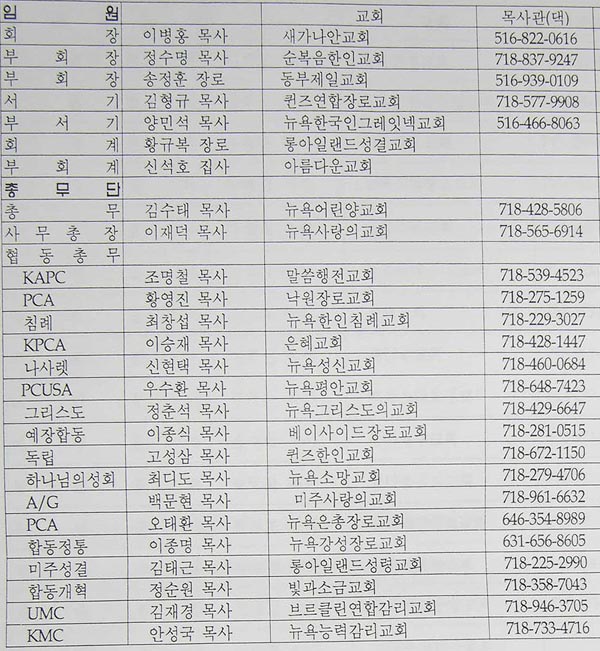 임 원 교회 목사관(댁)
회 장 이병홍 목사 새가나안교회 516-822-0616
부 회 장 정수명 목사 순복음한인교회 718-837-9247
부 회 장 송정훈 장로 동부제일교회 516-939-0109
서 기 김형규 목사 퀸즈연합장로교회 718-577-9908
부 서 기 양민석 목사 뉴욕한국인그레잇넥교회 516-466-8063
회 계 황규복 장로 롱아일랜드성결교회
부 회 계 신석호 집사 아름다운교회
총 무 단
총 무 김수태 목사 뉴욕어린양교회 718-428-5806
사 무 총 장 이재덕 목사 뉴욕사랑의교회 718-565-6914
협 동 총 무
KAPC 조명철 목사 말씀행전교회 718-539-4523
PCA 황영진 목사 낙원장로교회 718-275-1259
침례 최창섭 목사 뉴욕한인침례교회 718-229-3027
KPCA 이승재 목사 은혜교회 718-428-1447
나사렛 신현택 목사 뉴욕성신교회 718-460-0684
PCUSA 우수환 목사 뉴욕평안교회 718-648-7423
그리스도 정춘석 목사 뉴욕그리스도의교회 718-429-6647
예장합동 이종식 목사 베이사이드장로교회 718-281-0515
독립 고성삼 목사 퀸즈한인교회 718-672-1150
하나님의성회 최디도 목사 뉴욕소망교회 718-279-4706
A/G 백문현 목사 미주사랑의교회 718-961-6632
PCA 오태환 목사 뉴욕은총장로교회 646-354-8989
합동정통 이종명 목사 뉴욕강성장로교회 631-656-8605
미주성결 김태근 목사 롱아일랜드성령교회 718-225-2990
합동개혁 정순원 목사 빛과소금교회 718-358-7043
UMC 김재경 목사 브르클린연합감리교회 718-946-3705
KMC 안성국 목사 뉴욕능력감리교회 718-733-4716